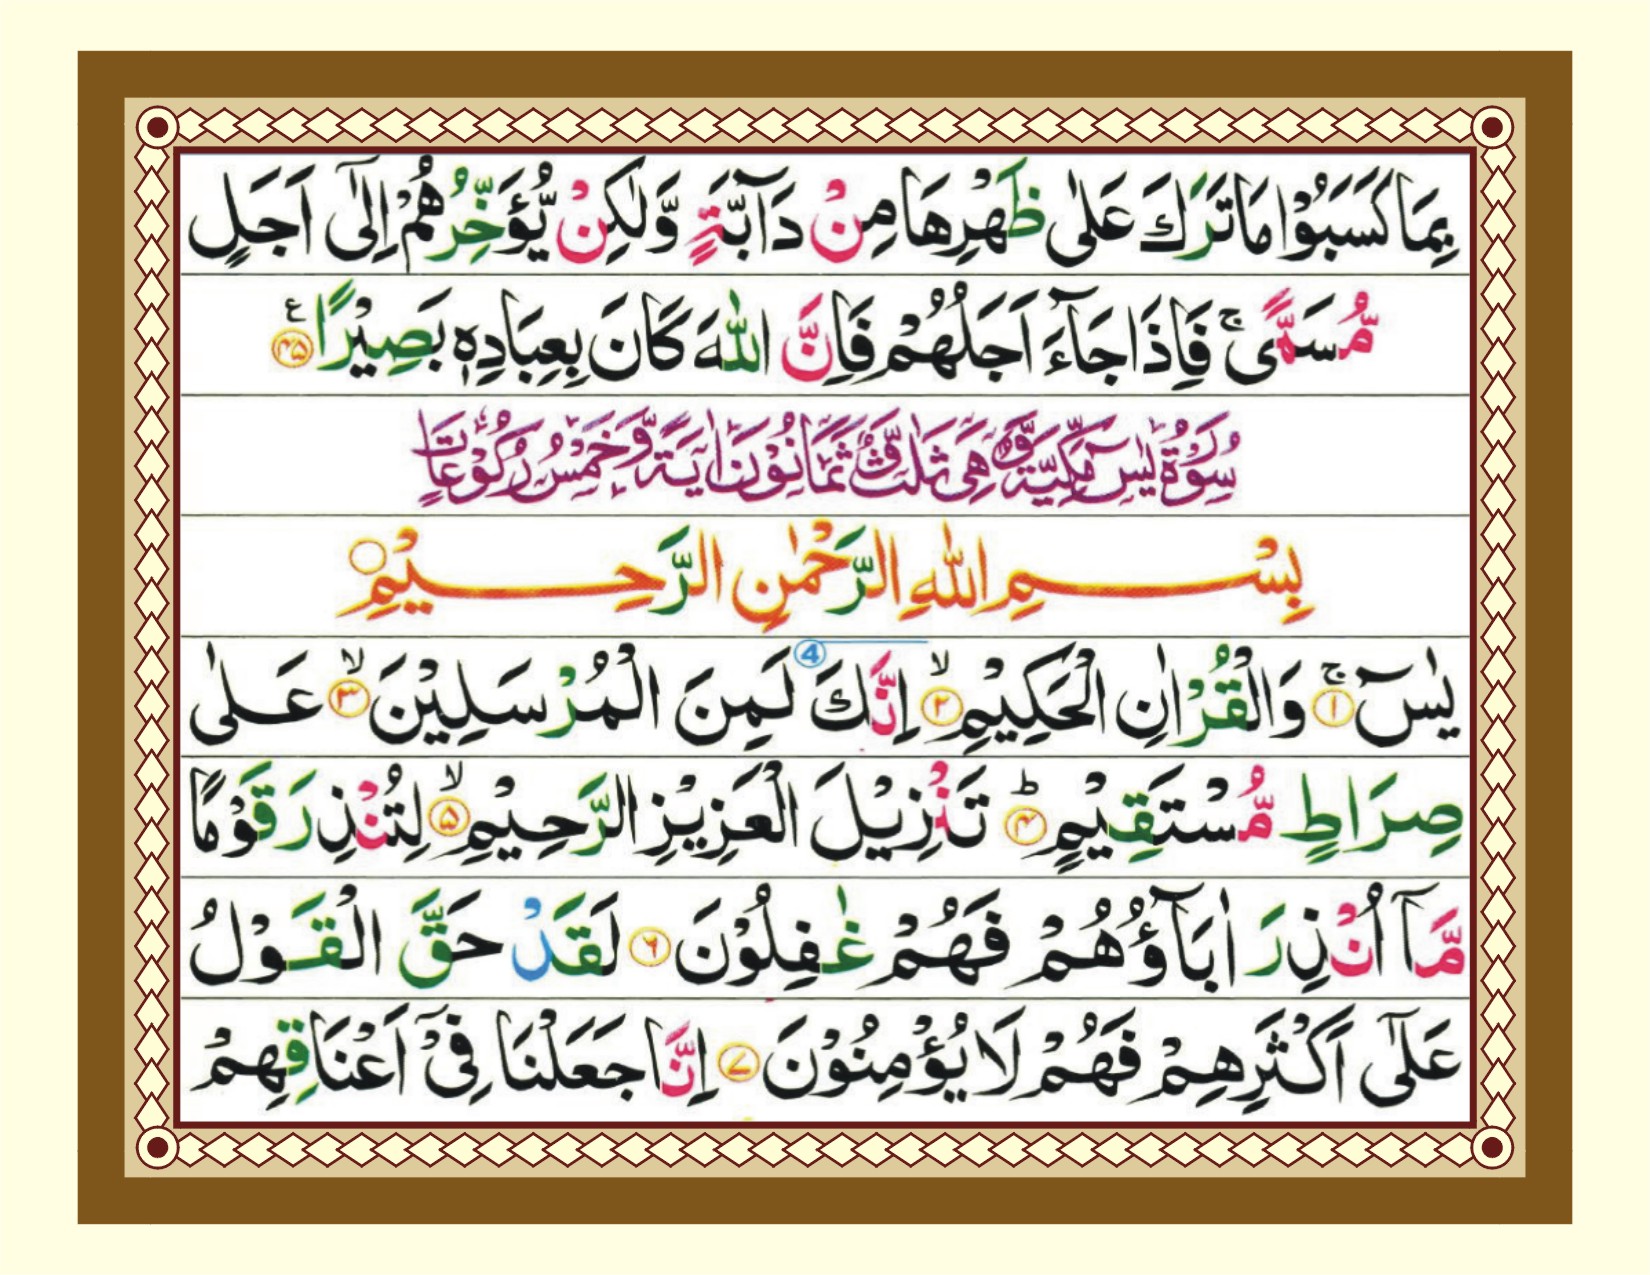 بِمَا كَسَبُوْا مَا تَرَكَ عَلٰى ظَهْرِهَا مِنْ دَآبَّةٍ وَّلٰكِنْ يُّؤَخِّرُهُمْ اِلٰٓى اَجَلٍ
مُّسَمًّى ۚ فَاِذَا جَآءَ اَجَلُهُمْ فَاِنَّ اللّٰهَ كَانَ بِعِبَادِهٖ بَصِيْرًا ۴۵ ع
سُوْرَةُ يٰسٓ مَكِّيَّةٌ وَّهِىَ ثَلٰثٌ وَّثَمَانُوْنَ اٰيَةً وَّخَمْسُ رُكُوْعَاتٍ
بِسْمِ اللّٰهِ الرَّحْمٰنِ الرَّحِيْمِ ○
يٰسٓ ۚ ۱ وَالْقُرْاٰنِ الْحَكِيْمِ ۙ ۲ اِنَّكَ 4 لَمِنَ الْمُرْسَلِيْنَ ۙ ۳ عَلٰى
صِرَاطٍ مُّسْتَقِيْمٍ ؕ ۴ تَنْزِيْلَ الْعَزِيْزِ الرَّحِيْمِ ۙ ۵ لِتُنْذِرَ قَوْمًا
مَّآ اُنْذِرَ اٰبَآؤُهُمْ فَهُمْ غٰفِلُوْنَ ۶ لَقَدْ حَقَّ الْقَوْلُ
عَلٰٓى اَكْثَرِهِمْ فَهُمْ لَا يُؤْمِنُوْنَ ۷ اِنَّا جَعَلْنَا فِىْٓ اَعْنَاقِهِمْ